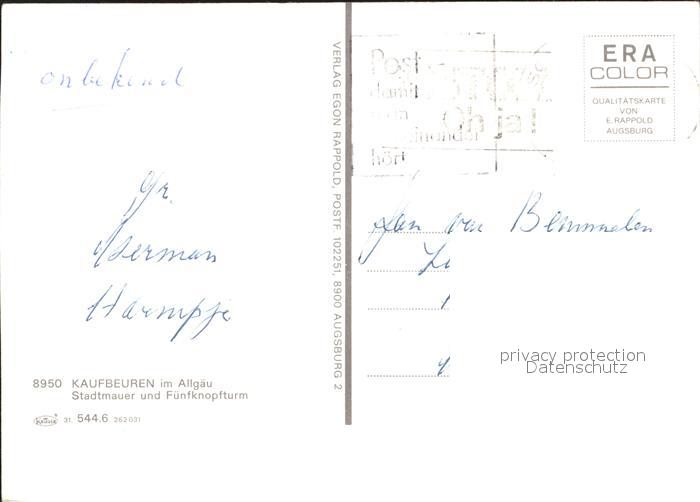 onbekend
Gr.
Herman
Harmpje
8950 KAUFBEUREN im Allgäu
Stadtmauer und Fünfknopfturm
31. 544.6 262 031
VERLAG EGON RAPPOLD, POSTF. 102251, 8900 AUGSBURG 2
Post
damit
man
einander
hört
Oh ja!
ERA
COLOR
QUALITÄTSKARTE
VON
E. RAPPOLD
AUGSBURG
Jan van Bemmelen
privacy protection
Datenschutz